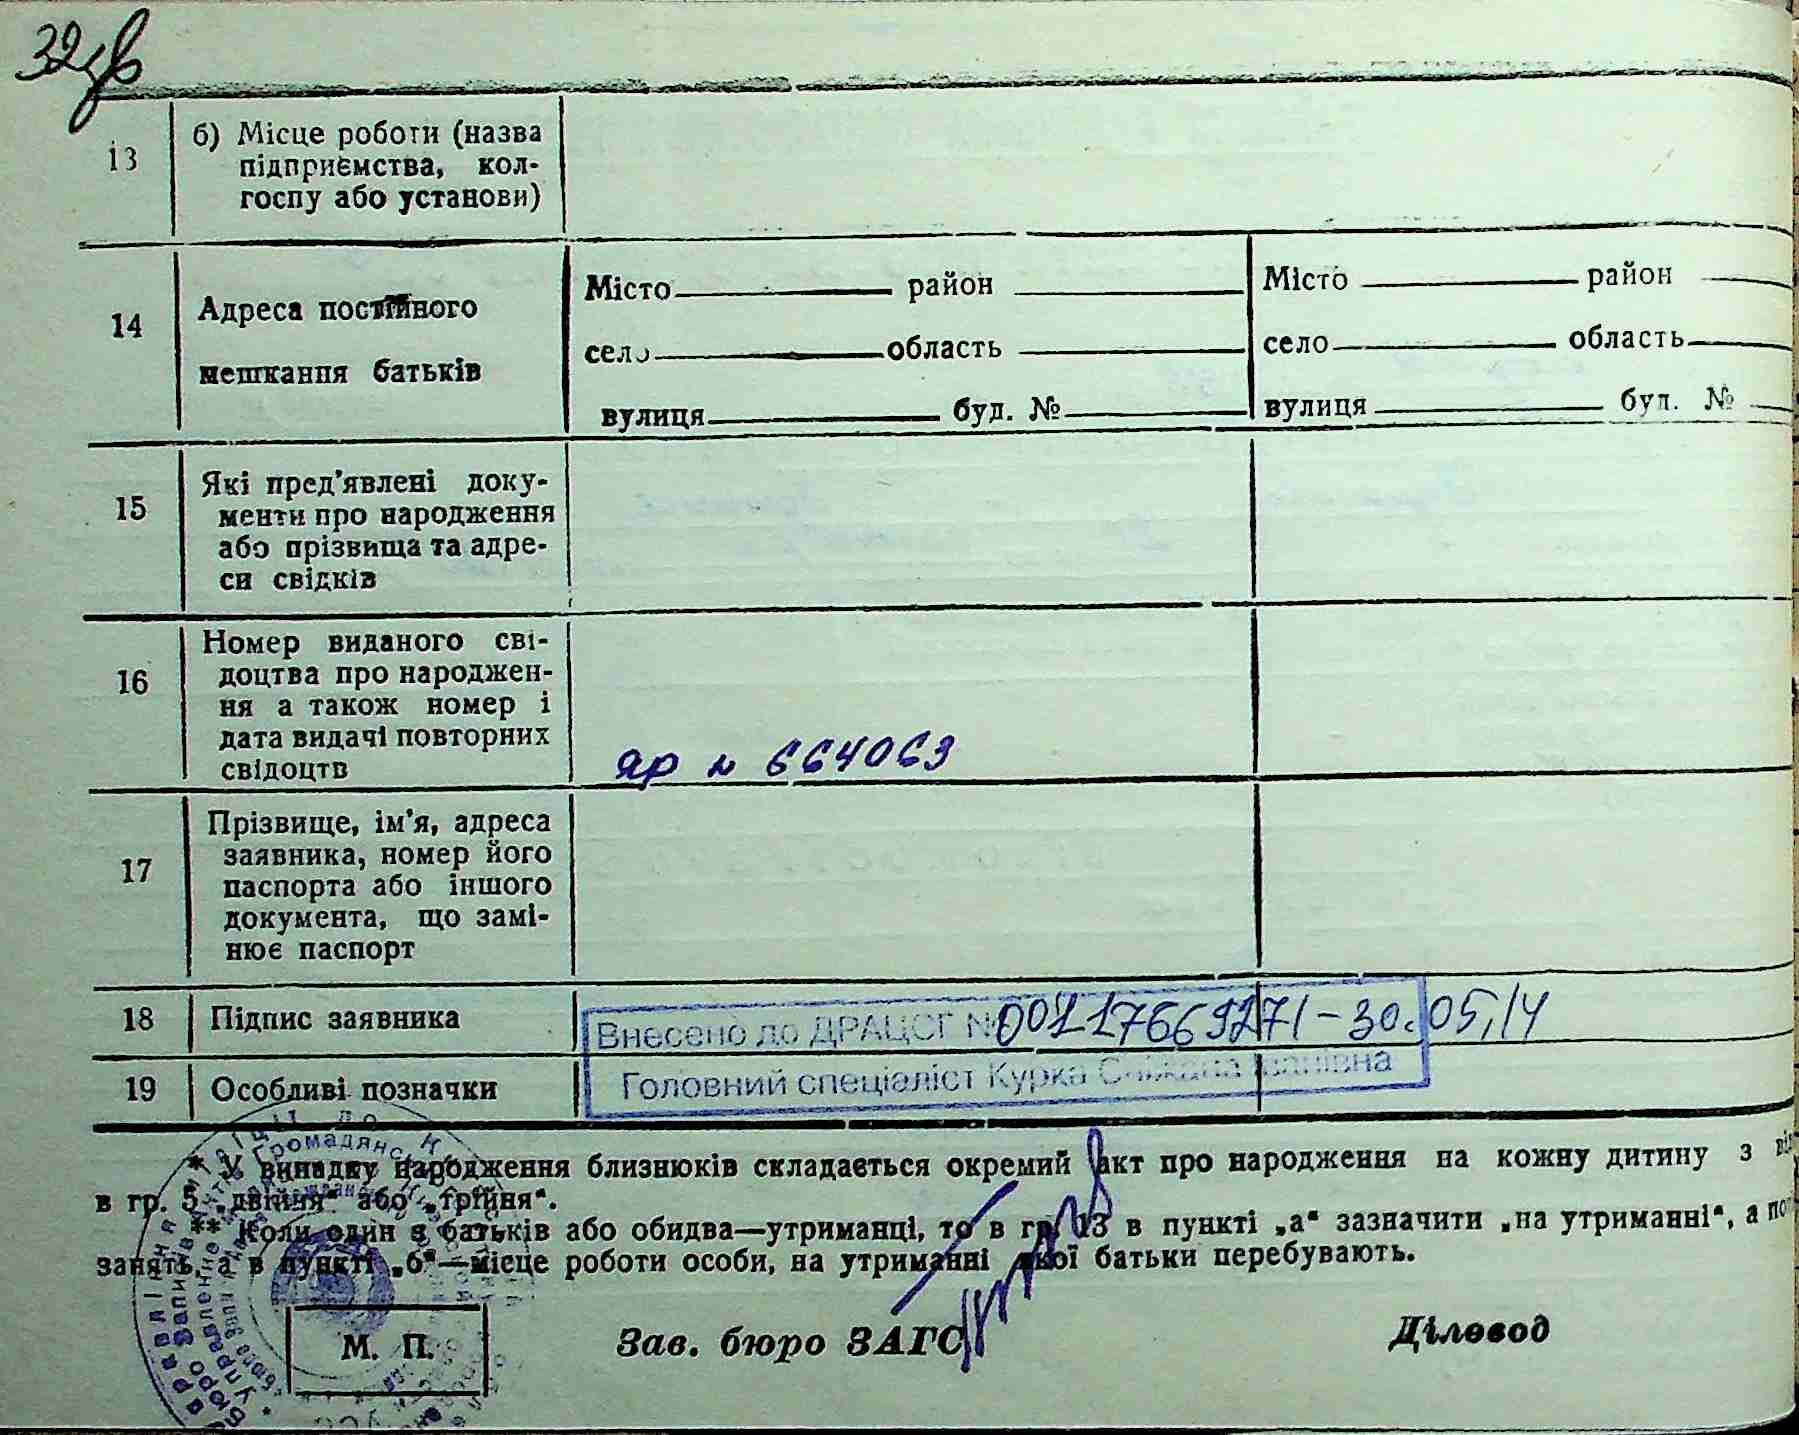 32 зв
13 б) Місце роботи (назва
підприємства, кол-
госпу або установи)
14 Адреса постійного
мешкання батьків
Місто район
село область
вулиця буд. №
Місто район
село область
вулиця буд. №
15 Які пред'явлені доку-
менти про народження
або прізвища та адре-
си свідків
16 Номер виданого сві-
доцтва про народжен-
ня а також номер і
дата видачі повторних
свідоцтв
ЯР № 664063
17 Прізвище, ім'я, адреса
заявника, номер його
паспорта або іншого
документа, що замі-
нює паспорт
18 Підпис заявника
Внесено до ДРАЦСГ № 00117669271 - 30.05.14
19 Особливі позначки
Головний спеціаліст Курка Сніжана Іванівна
* У випадку народження близнюків складається окремий акт про народження на кожну дитину з
в гр. 5 „двійня“ або „трійня“.
** Коли один з батьків або обидва—утриманці, то в гр. 13 в пункті „а“ зазначити „на утриманні“, а
занять, а в пункті „б“—місце роботи особи, на утриманні якої батьки перебувають.
М. П.
Зав. бюро ЗАГС
Діловод